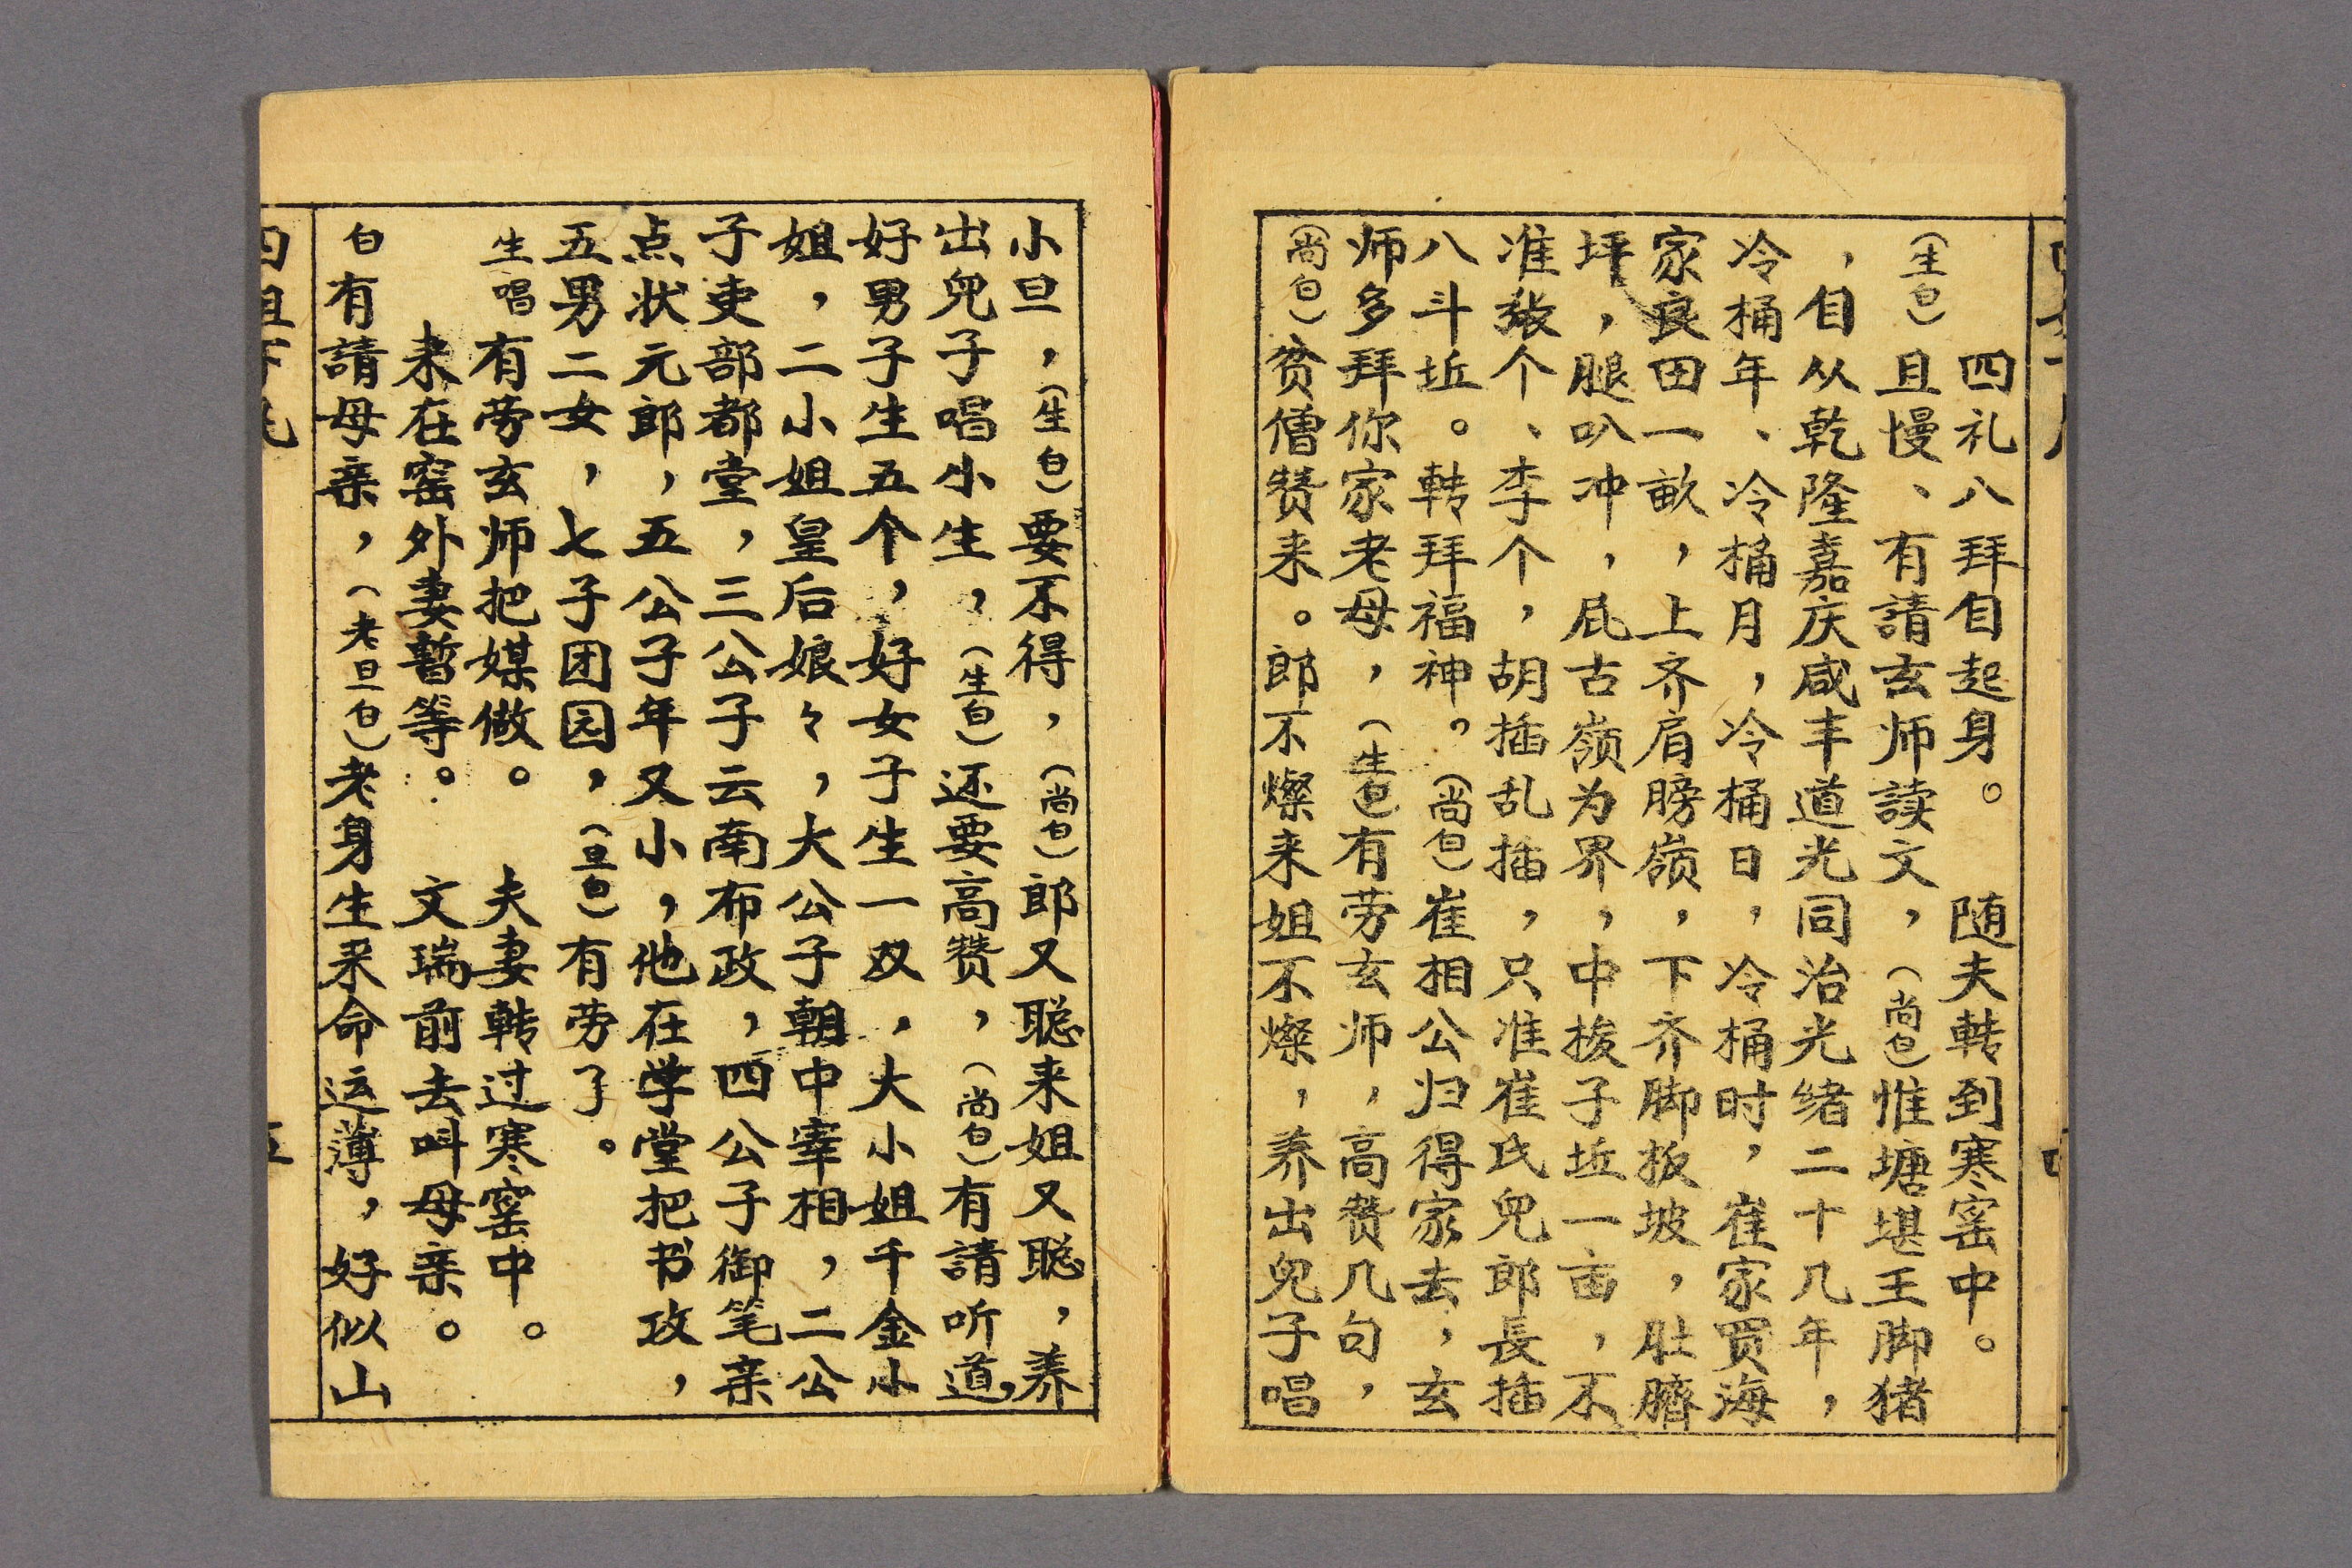 四礼八拜自起身。　随夫转到寒窑中。
(生白)且慢、有請玄师读文，(尚白)惟塘堪王脚猪
，自从乾隆嘉庆咸丰道光同治光绪二十几年，
冷桶年、冷桶月，冷桶日，冷桶时，崔家買海
家良田一畝，上齐肩膀嶺，下齐脚扳坡，肚臍
坪，腿叭冲，屁古嶺为界，中梭子坵一亩，不
准张个、李个，胡插乱插，只准崔氏兒郎長插
八斗坵。转拜福神。(尚白)崔相公归得家去，玄
师多拜你家老母，(生白)有劳玄师，高赞几句，
(尚白)贫僧赞来。郎不燦来姐不燦，养出兒子唱
小旦，(生白)要不得，(尚白)郎又聪来姐又聪，养
出兒子唱小生，(生白)还要高赞，(尚白)有請听道，
好男子生五个，好女子生一双，大小姐千金小
姐，二小姐皇后娘々，大公子朝中宰相，二公
子吏部都堂，三公子云南布政，四公子御笔亲
点状元郎，五公子年又小，他在学堂把书攻，
五男二女，七子团园，(旦白)有劳了。
生唱有劳玄师把媒做。　夫妻转过寒窑中。
来在窑外妻暂等。　文瑞前去叫母亲。
白有請母亲，(老旦白)老身生来命运薄，好似山